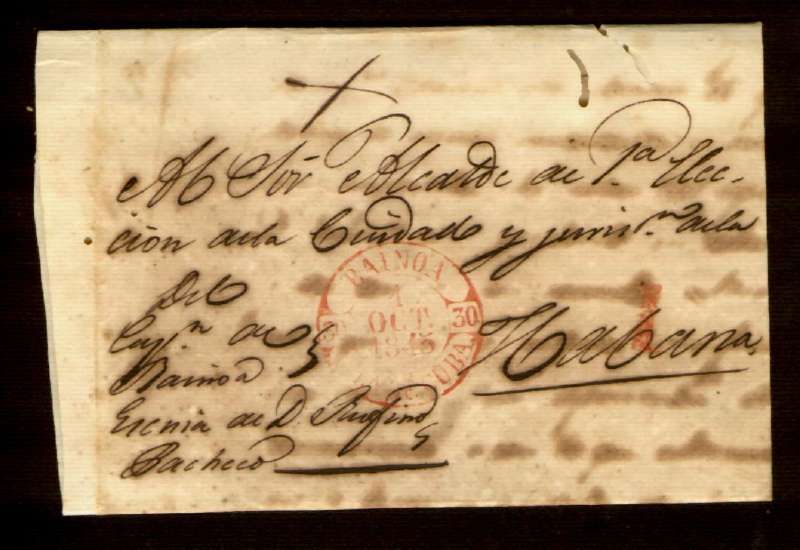 Al Sôr Alcalde de 1ª Elec-
cion dela Ciudad y juris.ⁿ dela
Habana
Del
Cap.ⁿ de
Bainoa
Escnia de D. Rufino
Pacheco
BAINOA
1
OCT.
1845
30
CUBA